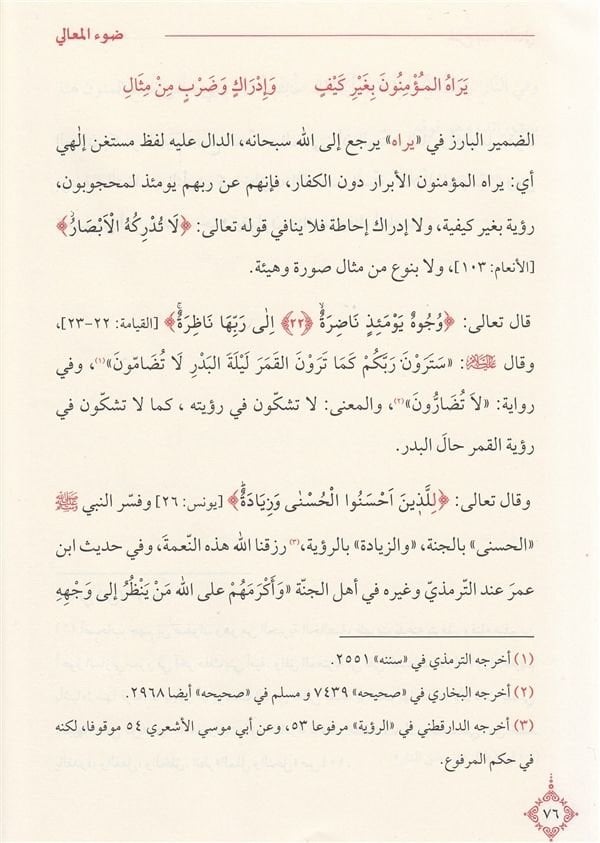 ضوء المعالي
يَرَاهُ المُؤْمِنُونَ بِغَيْرِ كَيْفٍ وَإِدْرَاكٍ وَضَرْبٍ مِنْ مِثَالِ
الضمير البارز في «يراه» يرجع إلى الله سبحانه، الدال عليه لفظ مستغن إلٰهي
أي: يراه المؤمنون الأبرار دون الكفار، فإنهم عن ربهم يومئذ لمحجوبون،
رؤية بغير كيفية، ولا إدراك إحاطة فلا ينافي قوله تعالى: ﴿لَا تُدْرِكُهُ الْاَبْصَارُ﴾
[الأنعام: ١٠٣]، ولا بنوع من مثال صورة وهيئة.
قال تعالى: ﴿وُجُوهٌ يَوْمَئِذٍ نَاضِرَةٌ ﴿٢٢﴾ اِلٰى رَبِّهَا نَاظِرَةٌ﴾ [القيامة: ٢٢-٢٣]،
وقال ﷺ: «سَتَرَوْنَ رَبَّكُمْ كَمَا تَرَوْنَ القَمَرَ لَيْلَةَ البَدْرِ لَا تُضَامّونَ»(١)، وفي
رواية: «لَا تُضَارُّونَ»(٢)، والمعنى: لا تشكّون في رؤيته ، كما لا تشكّون في
رؤية القمر حالَ البدر.
وقال تعالى: ﴿لِلَّذِينَ اَحْسَنُوا الْحُسْنٰى وَزِيَادَةٌ﴾ [يونس: ٢٦] وفسّر النبي ﷺ
«الحسنى» بالجنة، «والزيادة» بالرؤية،(٣) رزقنا الله هذه النّعمةَ، وفي حديث ابن
عمرَ عند الترمذيّ وغيره في أهل الجنّة «وَأَكْرَمَهُمْ على الله مَنْ يَنْظُرُ إلى وَجْهِهِ
(١) أخرجه الترمذي في «سننه» ٢٥٥١.
(٢) أخرجه البخاري في «صحيحه» ٧٤٣٩ و مسلم في «صحيحه» أيضا ٢٩٦٨.
(٣) أخرجه الدارقطني في «الرؤية» مرفوعا ٥٣، وعن أبي موسي الأشعري ٥٤ موقوفا، لكنه
في حكم المرفوع.
٧٦